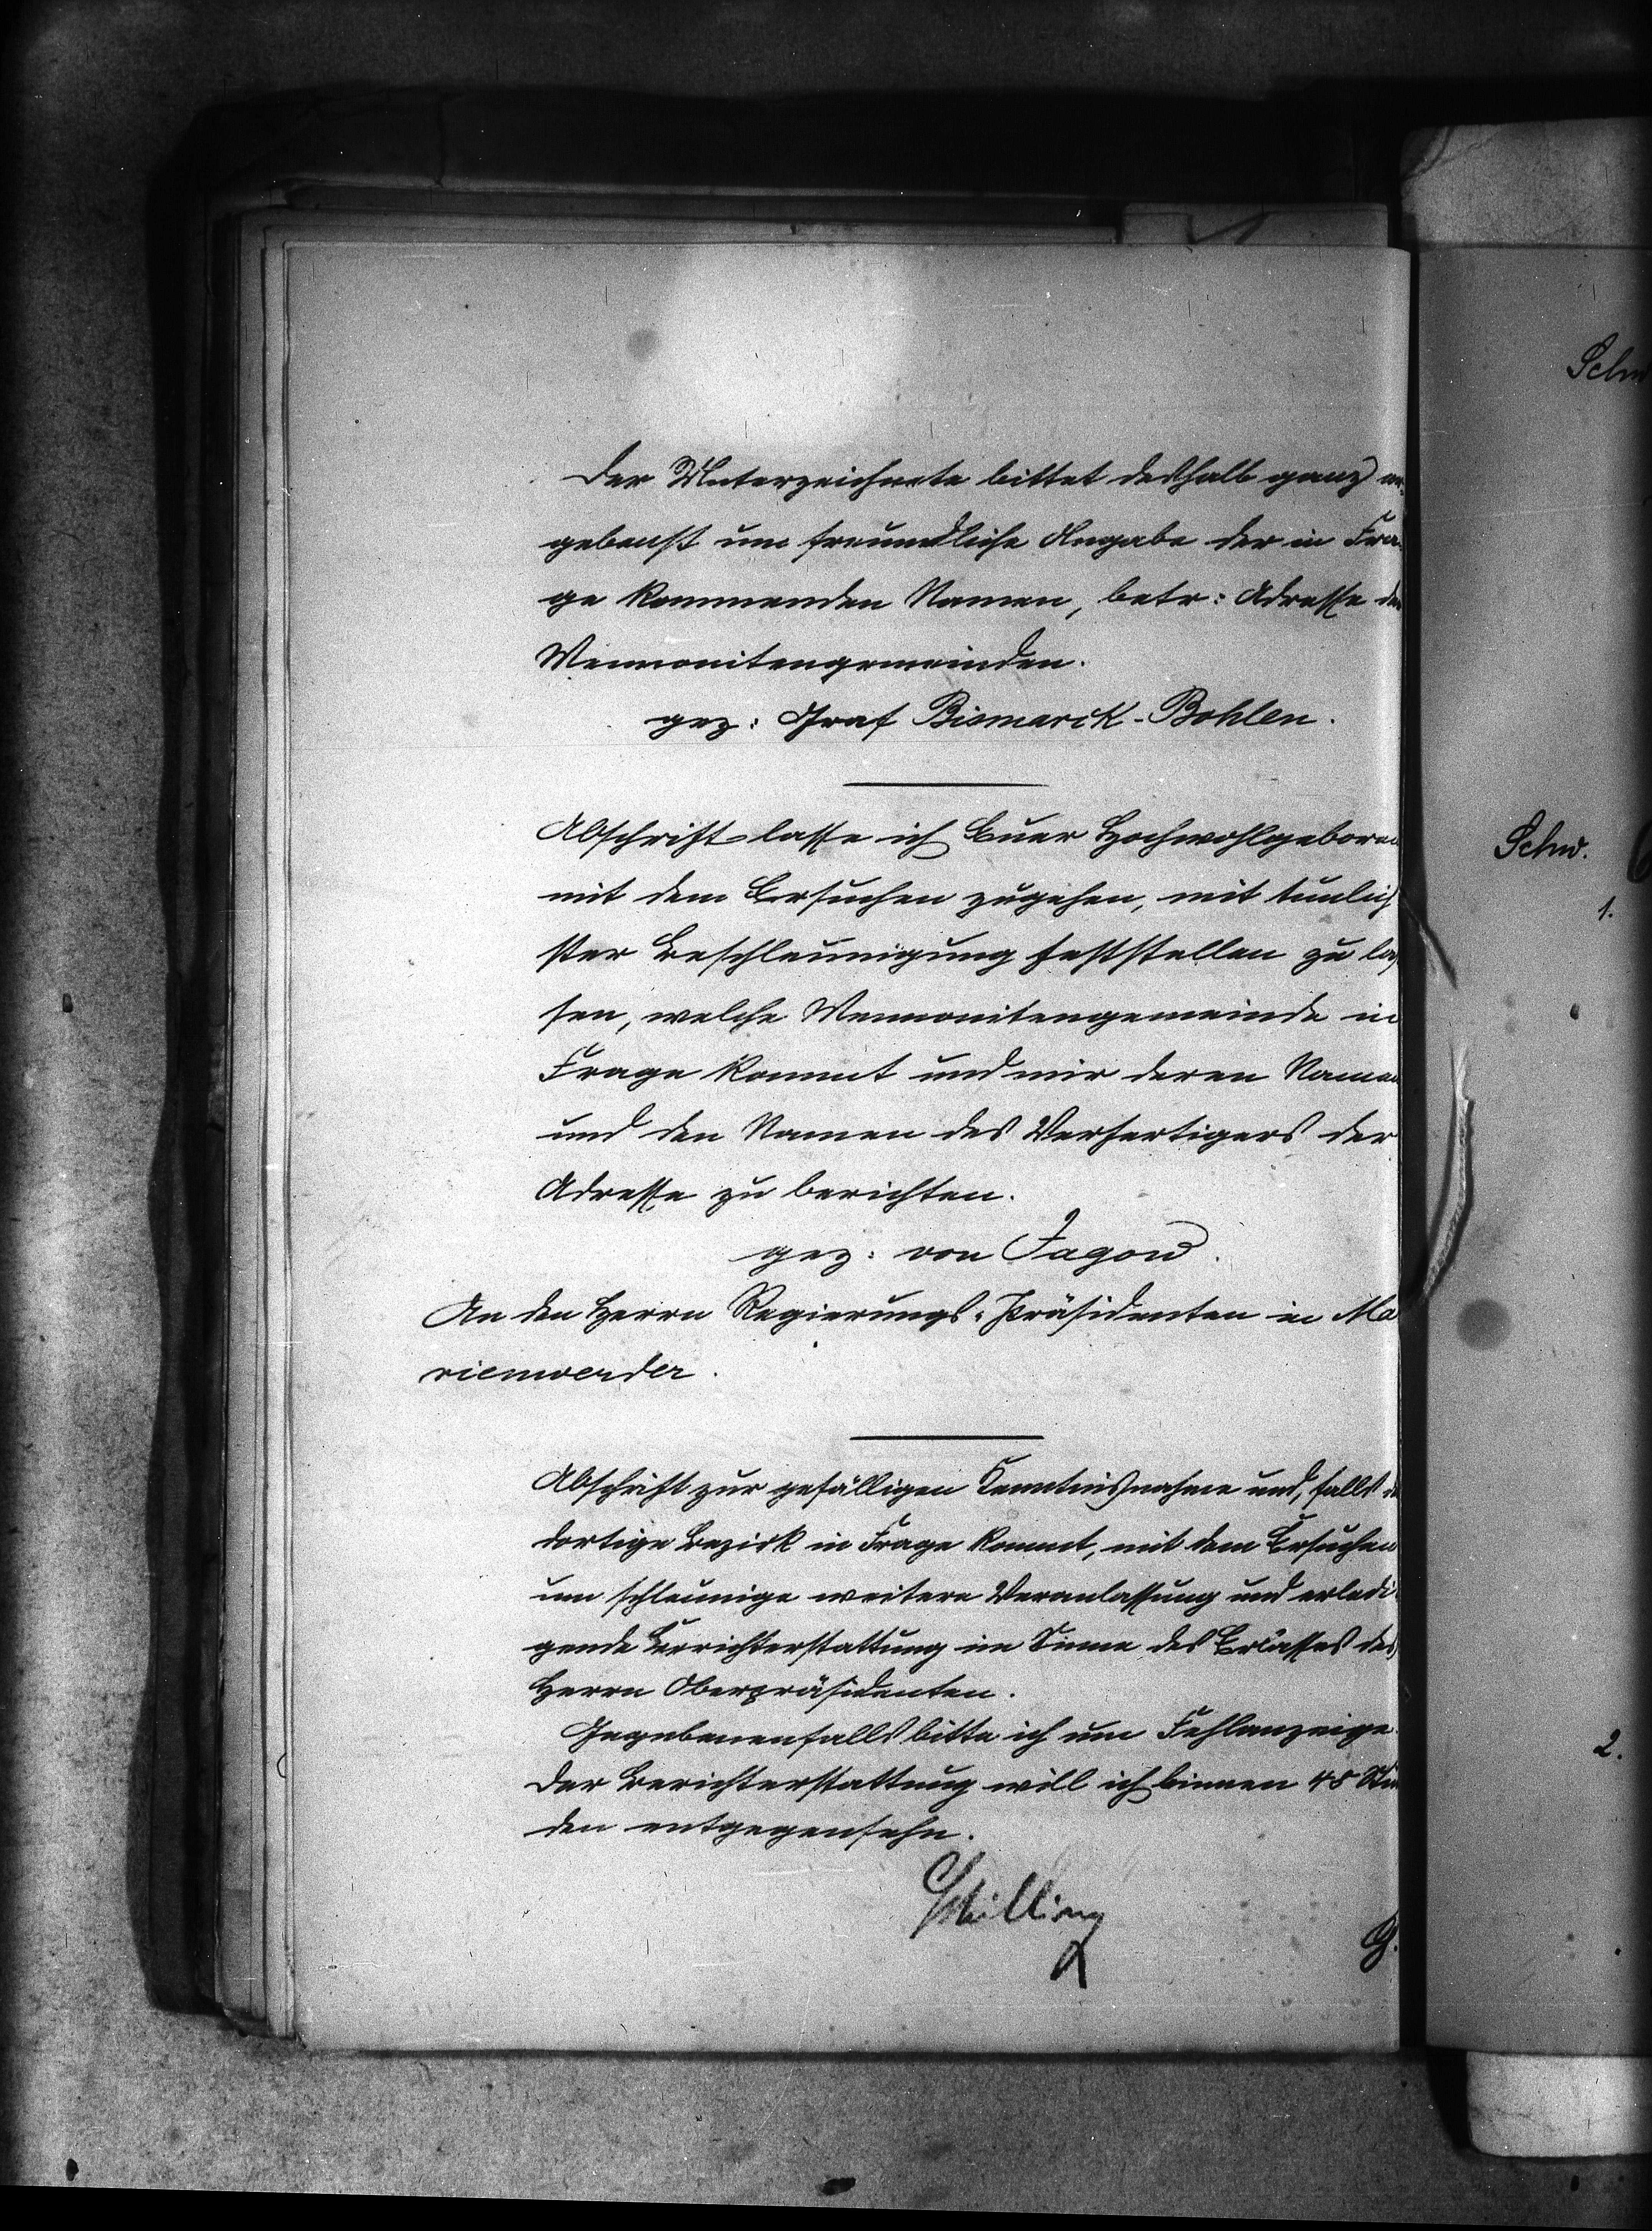 Der Unterzeichnete bittet deshalb ganz er-
gebenst um freundliche Angabe der in Fra-
ge kommenden Namen, betr: Adresse der
Mennonitengemeinden.
gez: Graf Bismarck-Bohlen.
Abschrift lasse ich Euer Hochwohlgeboren
mit dem Ersuchen zugehen, mit tunlich
ster Beschleunigung feststellen zu las
sen, welche Mennonitengemeinde in
Frage kommt und mir deren Namen
und den Namen des Verfertigers der
Adresse zu berichten.
gez: von Jagow.
An den Herrn Regierungs-Präsidenten in Ma
rienwerder.
Abschrift zur gefälligen Kenntnisnahme und, falls der
dortige Bezirk in Frage kommt, mit dem Ersuchen
um schleunige weitere Veranlassung und erledi-
gende Berichterstattung im Sinne des Erlasses des
Herrn Oberpräsidenten.
Gegebenenfalls bitte ich um Fehlanzeige.
Der Berichterstattung will ich binnen 48 Stun
den entgegensehn.
Schilling
G.
Schw
Schw.
1.
2.